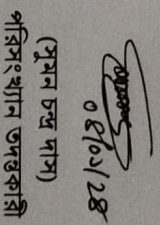 ০৪/০১/২৪
(সুমন চন্দ্র দাস)
পরিসংখ্যান তদন্তকারী